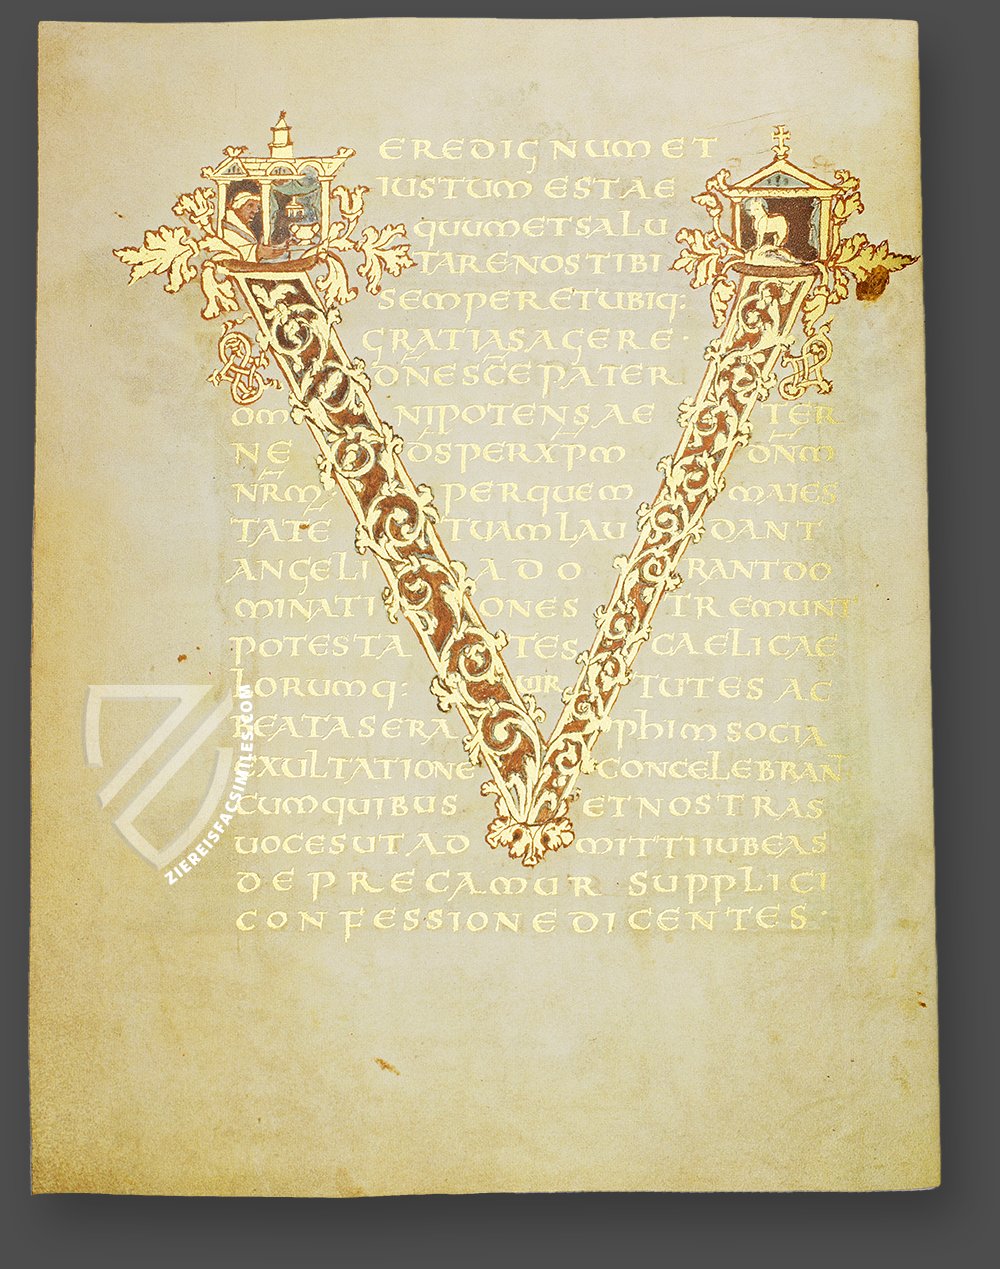 VEREDIGNUMET
IUSTUMESTAE
QUUMETSALU
TARENOSTIBI
SEMPERETUBIQ:
GRATIASAGERE·
DNESCEPATER
OMNIPOTENSAETER
NEDSPERXPMDNM
NRM·PERQUEMMAIES
TATETUAMLAUDANT
ANGELIADORANTDO
MINATIONESTREMUNT
POTESTATESCAELICAE
LORUMQ:UIRTUTESAC
BEATASERAPHIMSOCIA
EXULTATIONECONCELEBRANT
CUMQUIBUSETNOSTRAS
UOCESUTADMITTIIUBEAS
DEPRECAMURSUPPLICI
CONFESSIONEDICENTES·
ZIEREISFACSIMILES.COM